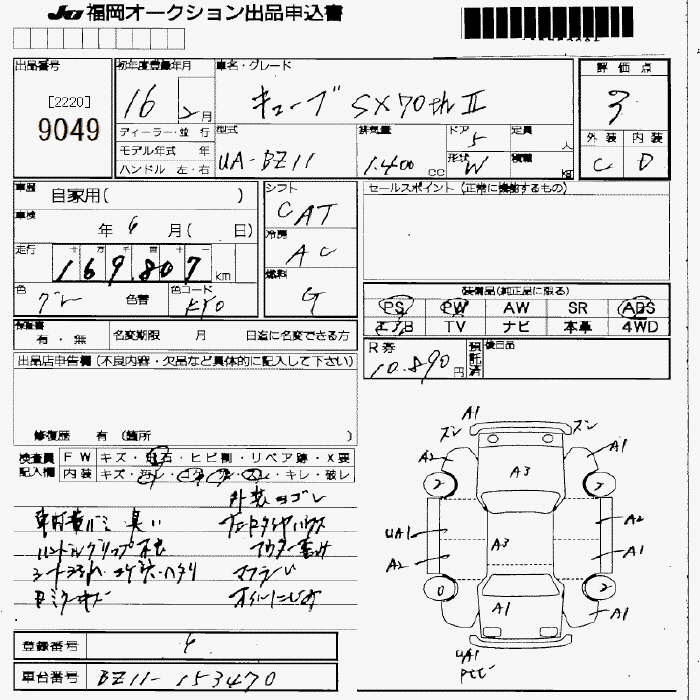 JU 福岡オークション出品申込書
出品番号
[2220]
9049
初年度登録年月
16 2月
ディーラー・並行
モデル年式 年
ハンドル 左・右
車名・グレード
キューブ SX 70th II
型式
UA-BZ11
排気量
1.400 cc
ドア
5
形状
W
定員
人
積載
kg
評価点
3
外装 内装
C D
車歴
自家用( )
車検
年 6 月( 日)
走行
十 万 千 百 十 一
169807 km
色
グレー
色替
色コード
KY0
シフト
CAT
冷房
AC
燃料
G
セールスポイント (正常に機能するもの)
装備品(純正品に限る)
PS PW AW SR ABS
エアB TV ナビ 本革 4WD
保証書
有・無
名変期限 月 日迄に名変できる方
R券
10.890円
預託済
後日品
出品店申告欄(不良内容・欠品など具体的に記入して下さい)
修復歴 有 (箇所 )
検査員記入欄
FW キズ・飛石・ヒビ割・リペア跡・X要
内装 キズ・汚レ・コゲ・穴・スレ・キレ・破レ
外装ヨゴレ
ハンドルグリップ
マフラー
登録番号
車台番号 BZ11-153470
A1
ズレ ズレ
A2 A1
A3
2 2
UA1 A3 A2
A2 A1
0 2
A1 A1
UA1